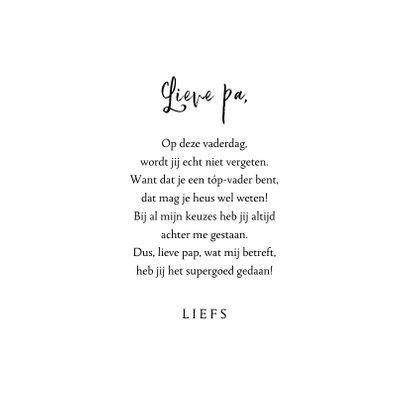 Lieve pa,
Op deze vaderdag,
wordt jij echt niet vergeten.
Want dat je een tóp-vader bent,
dat mag je heus wel weten!
Bij al mijn keuzes heb jij altijd
achter me gestaan.
Dus, lieve pap, wat mij betreft,
heb jij het supergoed gedaan!
LIEFS